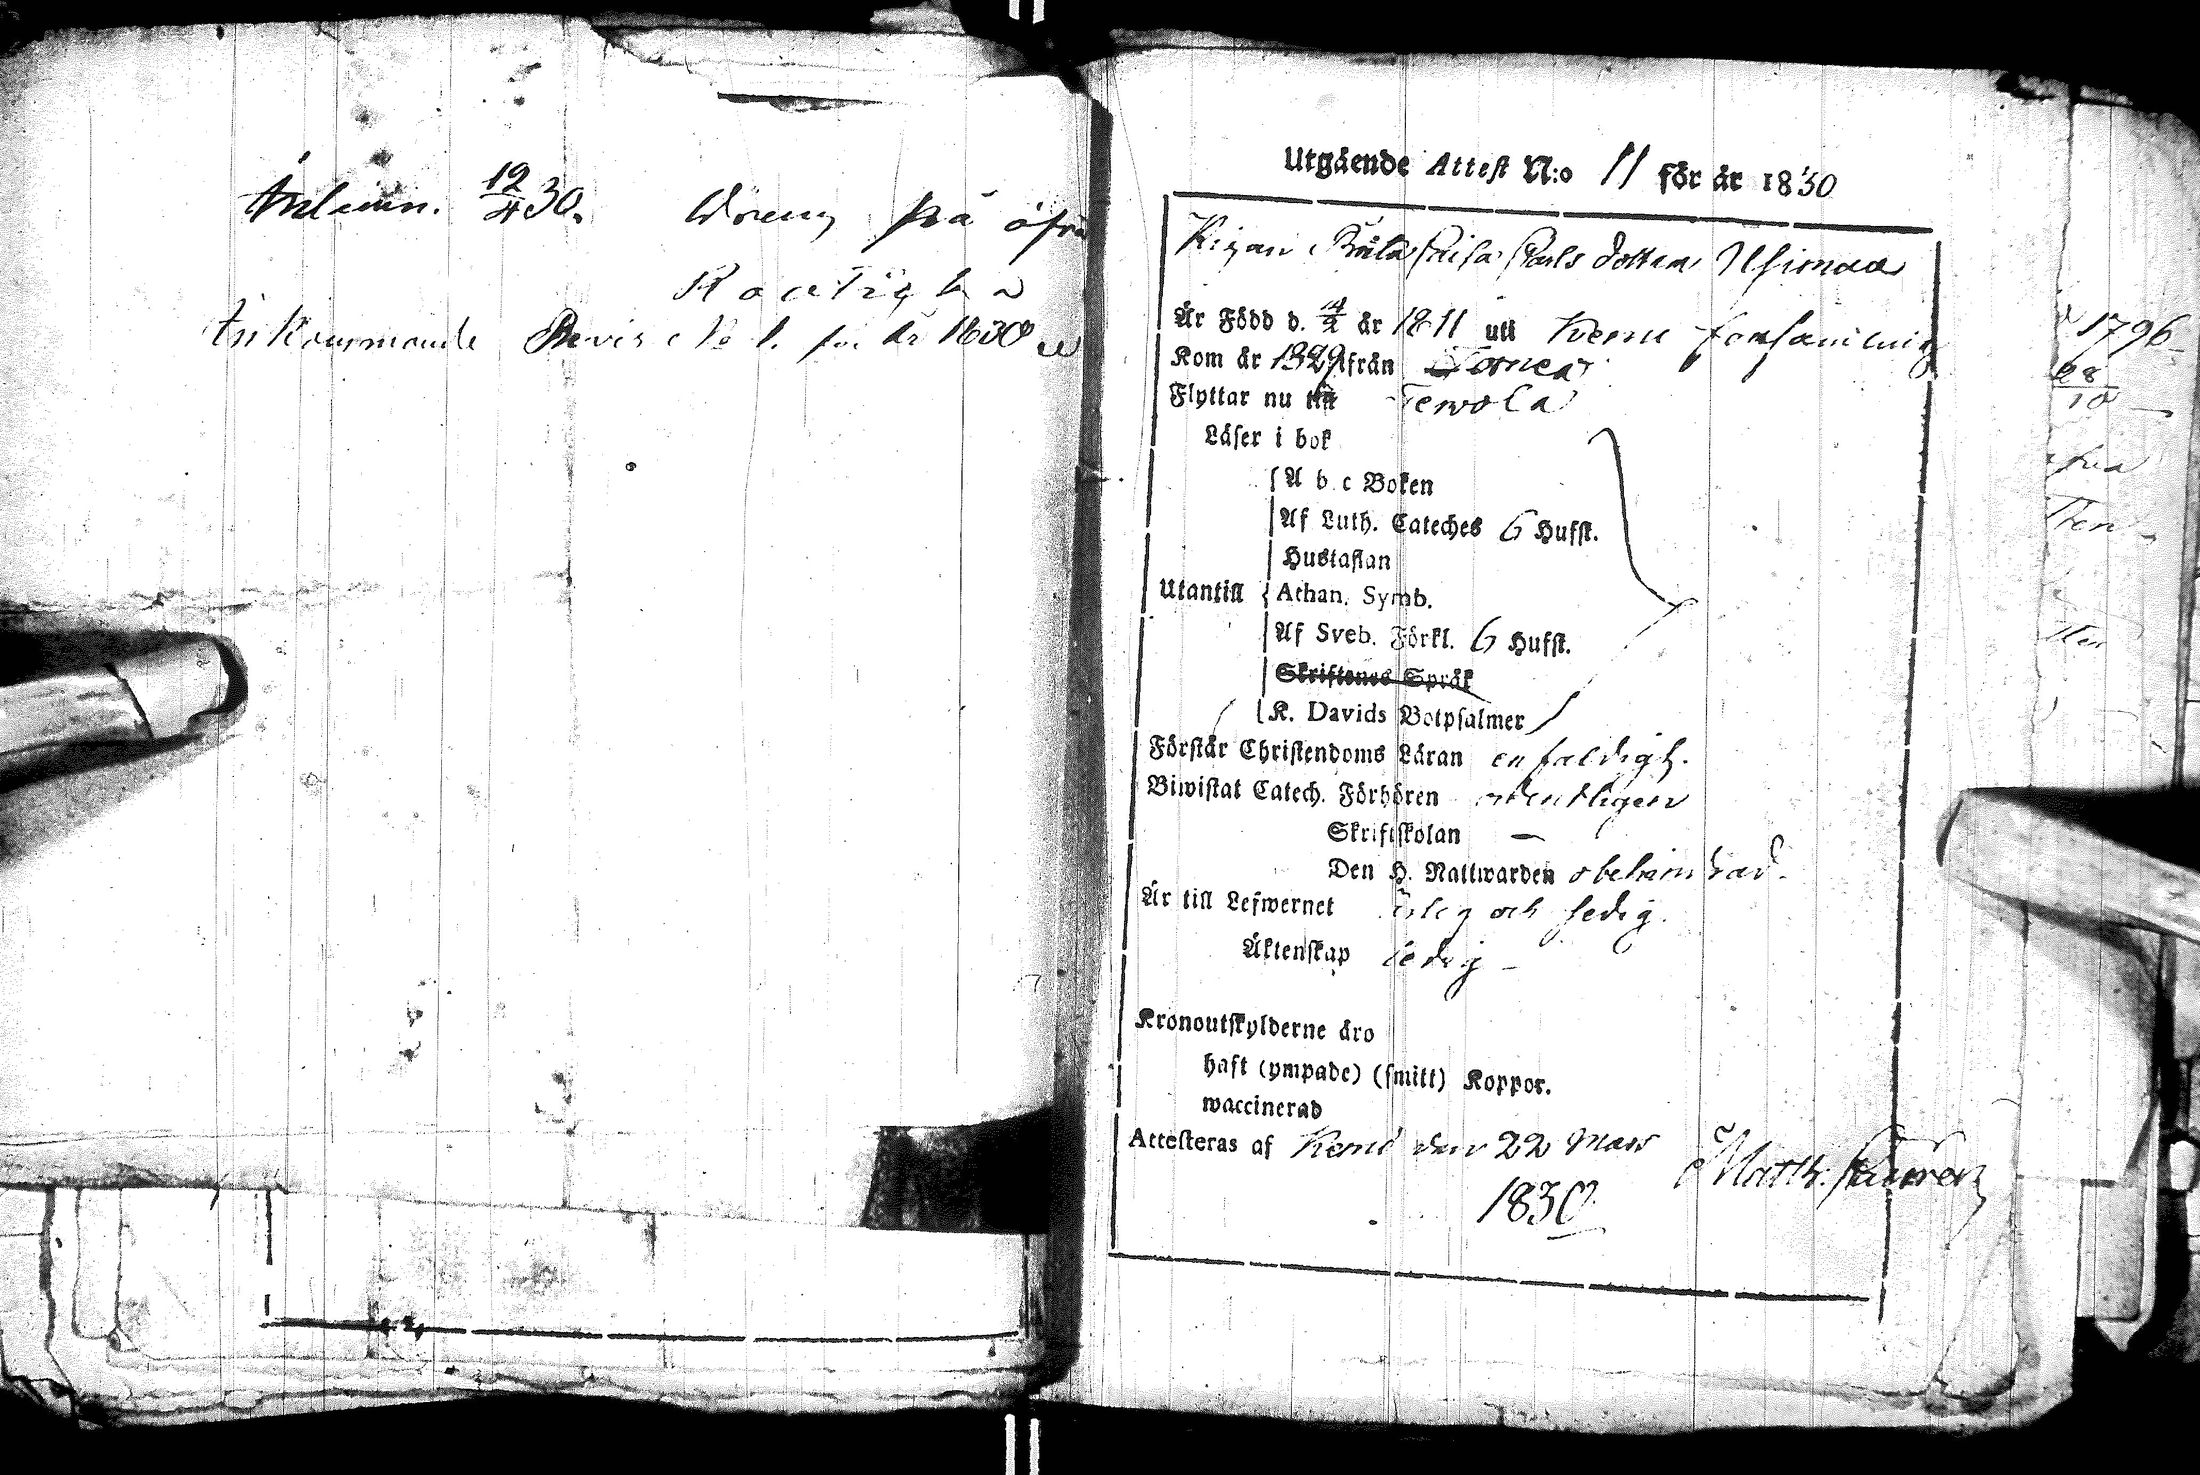 Anl 12/4 30. på
Ankommande Bevis No 1. för år 1830
Utgående Attest N:o 11 för år 1830
Pigan Lisa Carls dotter Usimaa
Är Född d. 4/2 år 1811 uti Kemi församling
Kom år 1829 från Torneå
Flyttar nu till Terwola
Läser i bok
A b c Boken
Af Luth. Cateches 6 Hufst.
Hustaflan
Utantill Athan. Symb.
Af Sveb. Förkl. 6 Hufst.
Skriftenes Språk
K. Davids Botpsalmer
Förstår Christendoms Läran enfaldigt.
Biwistat Catech. Förhören ordentligen
Skriftskolan —
Den H. Nattwarden obehindrad.
Är till Lefwernet ärlig och sedig.
Äktenskap ledig –
Kronoutskylderne äro
haft (ympade) (smitt) Koppor.
waccinerad
Attesteras af Kemi den 22 Mars
1830
Matth.
1796
28
10